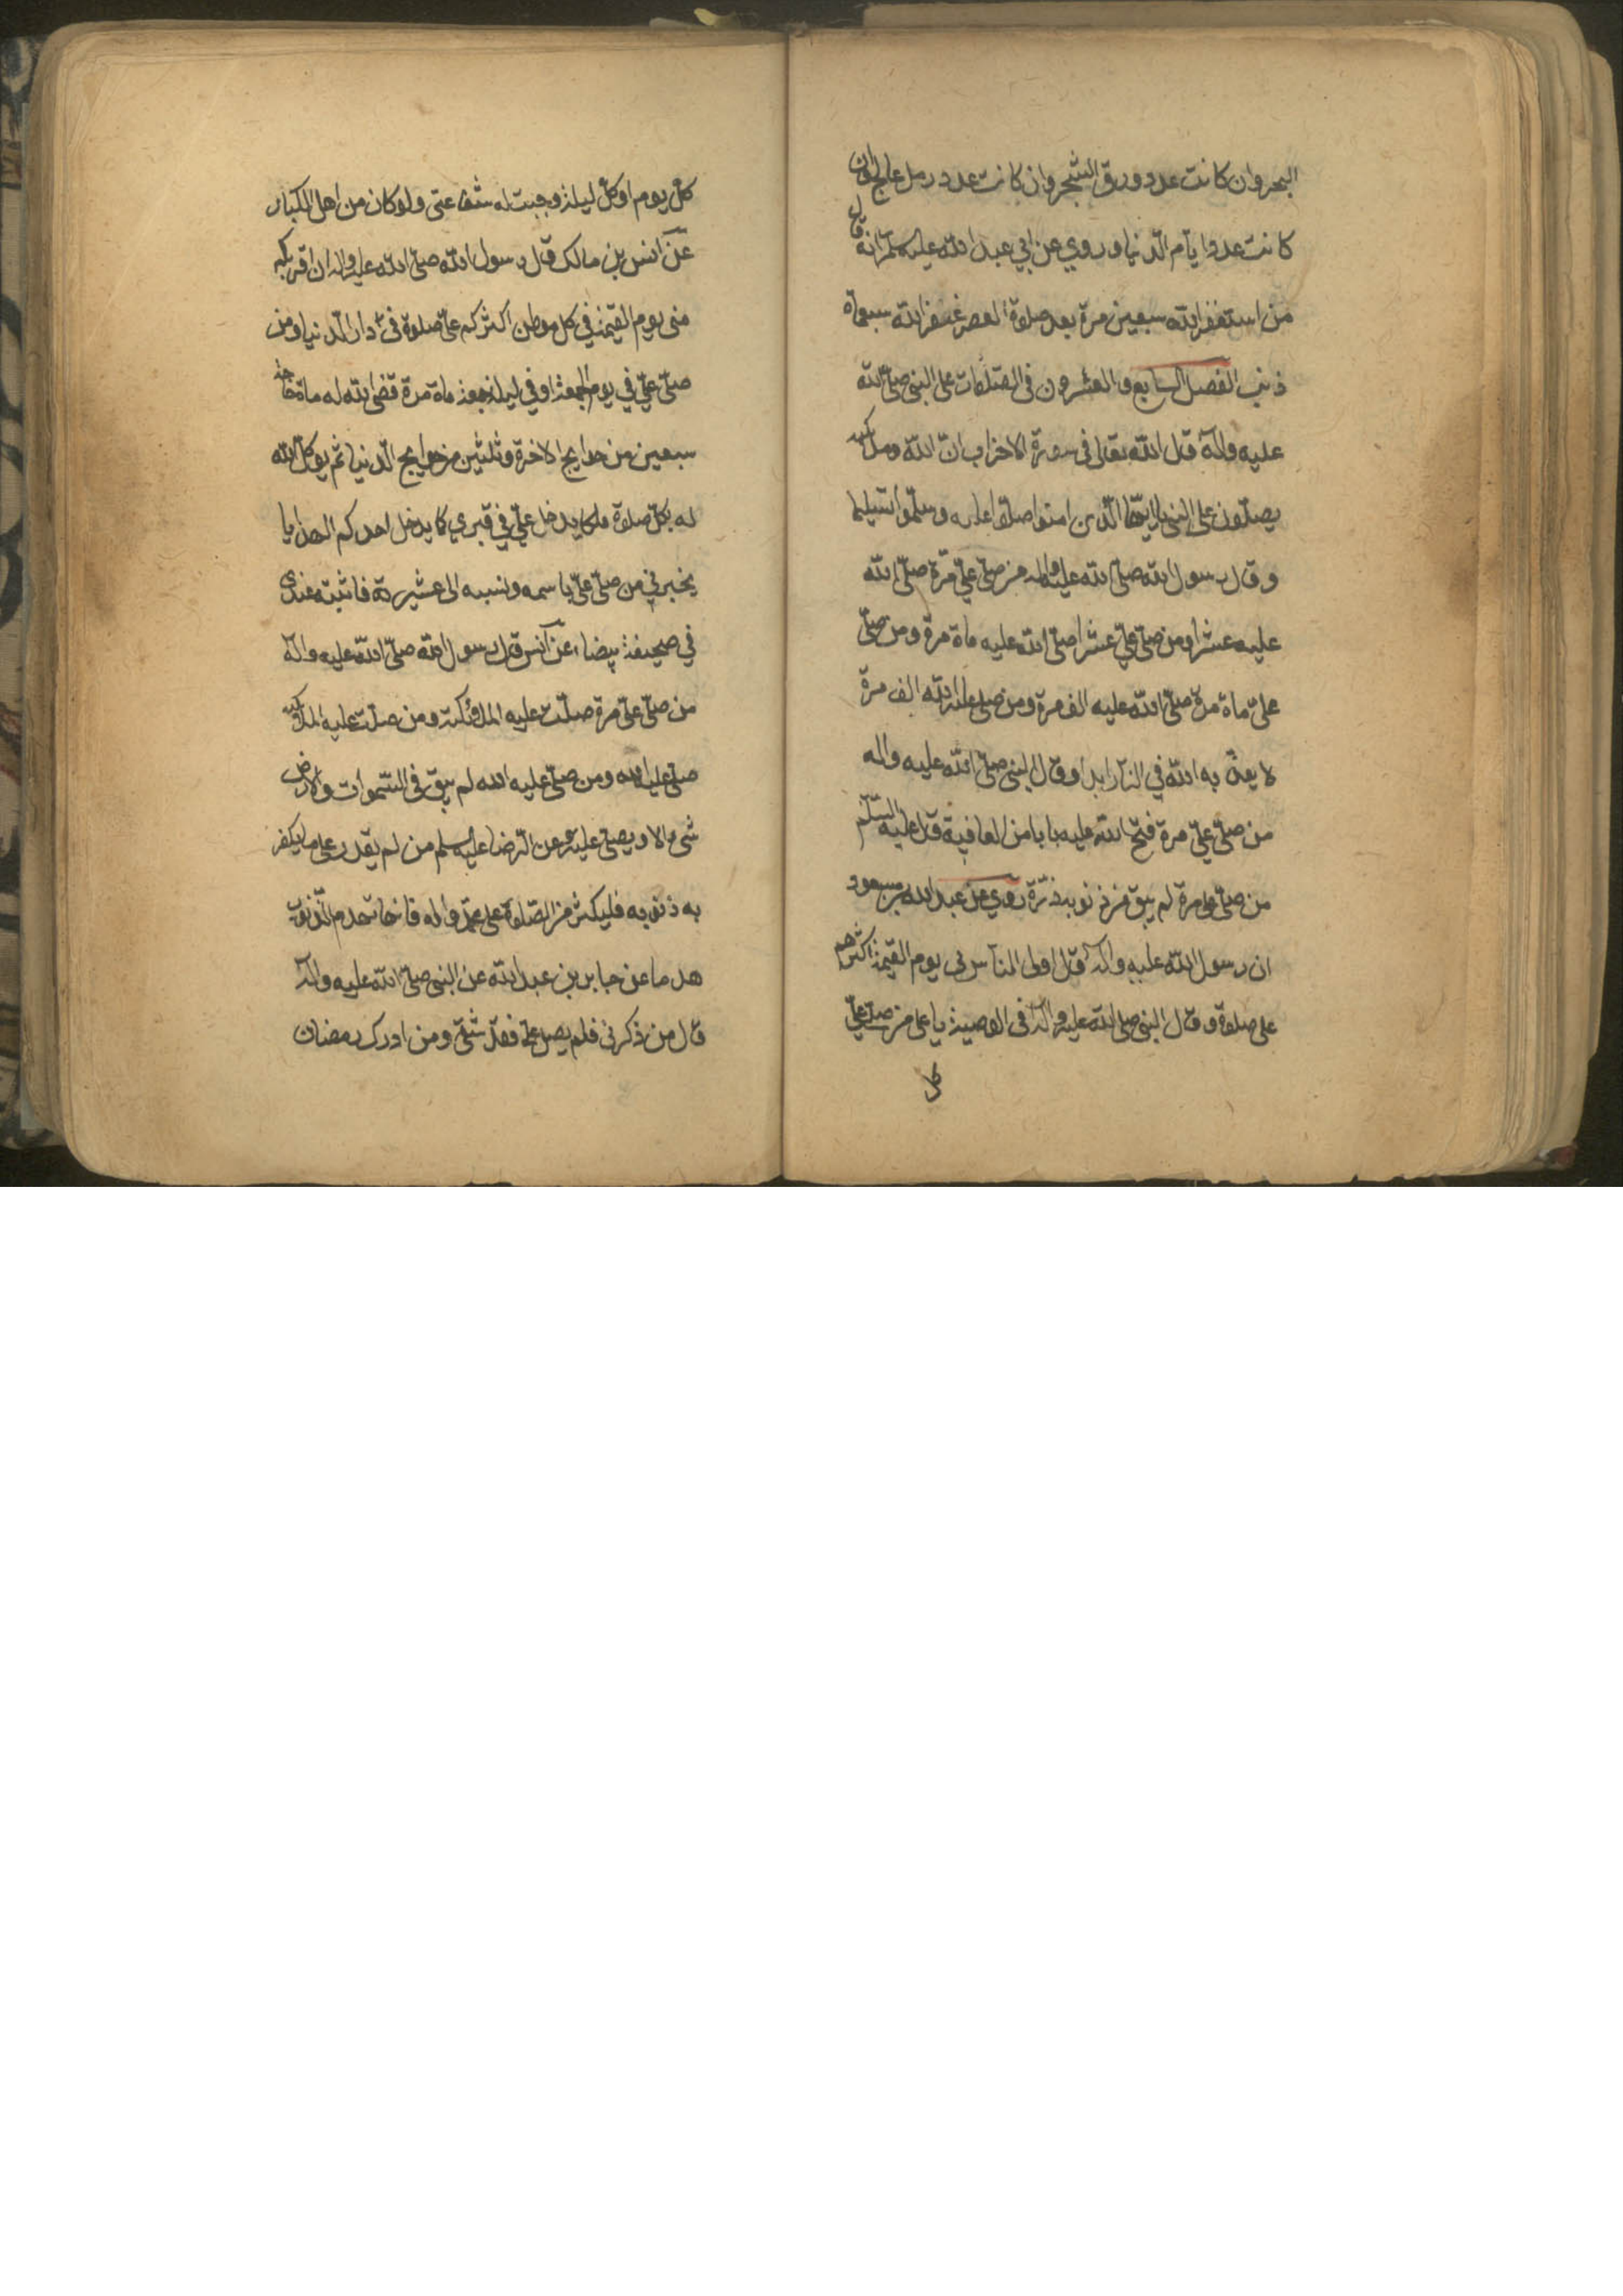 البحر وان كانت عدد ورق الشجر وان كانت عدد رمل عالج وان
كانت عدد ايام الدنيا وروي عن ابي عبد الله عليه السلم انه قال
من استغفر الله سبعين مرة بعد صلوة العصر غفر الله سبعماة
ذنب الفصل السابع والعشرون في الصلوات على النبي صلى الله
عليه وآله قال الله تعالى في سورة الاحزاب ان الله وملئكته
يصلون على النبي يا ايها الذين امنوا صلوا عليه وسلموا تسليما
وقال رسول الله صلى الله عليه واله من صلى علي مرة صلى الله
عليه عشرا ومن صلى علي عشرا صلى الله عليه ماة مرة ومن صلى
علي ماة مرة صلى الله عليه الف مرة ومن صلى عليه الله الف مرة
لا يعذبه الله في النار ابدا وقال النبي صلى الله عليه واله
من صلى علي مرة فتح الله عليه بابا من العافية قال عليه السلم
من صلى علي مرة لم يبق من ذنوبه ذرة روي عن عبد الله بن مسعود
ان رسول الله عليه وآله قال اولى الناس بي يوم القيمة اكثرهم
علي صلوة وقال النبي صلى الله عليه وآله في الوصية يا علي من صلى علي
كل
كل يوم او كل ليلة وجبت له شفاعتي ولو كان من اهل الكباير
عن انس بن مالك قال رسول الله صلى الله عليه واله ان اقربكم
مني يوم القيمة في كل موطن اكثركم علي صلوة في دار الدنيا ومن
صلى علي في يوم الجمعة او في ليلة جمعة ماة مرة قضى الله له ماة حاجة
سبعين من حوايج الاخرة وثلثين من حوايج الدنيا ثم يوكل الله
له بكل صلوة ملكا يدخل علي في قبري كما يدخل احدكم الهدايا
يخبرني من صلى علي باسمه ونسبه الى عشيرته فاثبته عندي
في صحيفة بيضاء عن انس قال رسول الله صلى الله عليه واله
من صلى علي مرة صلت عليه الملئكة ومن صلت عليه الملئكة
صلى عليه الله ومن صلى عليه الله لم يبق في السموات والارض
شيء الا ويصلي عليه عن الرضا عليه السلم من لم يقدر على ما يكفر
به ذنوبه فليكثر من الصلوة على محمد واله فانها تهدم الذنوب
هدما عن جابر بن عبد الله عن النبي صلى الله عليه وآله
قال من ذكرني فلم يصل علي فقد شقي ومن ادرك رمضان